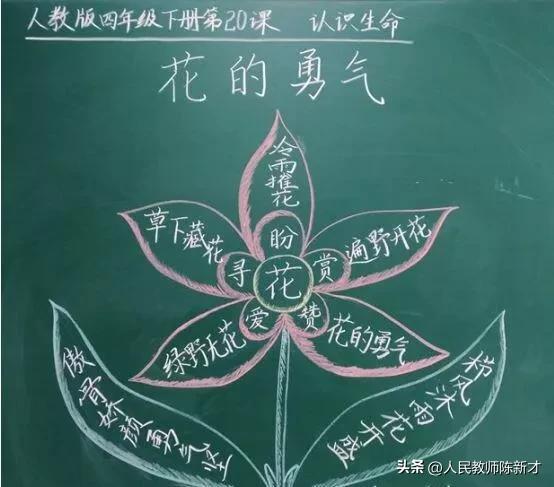 人教版四年级下册第20课 认识生命
花的勇气
冷雨摧花
盼
草下藏花
寻
花
赏
遍野开花
绿野无花
爱
赞
花的勇气
傲骨娇颜勇气坚
栉风沐雨花开盛
头条 @人民教师陈新才